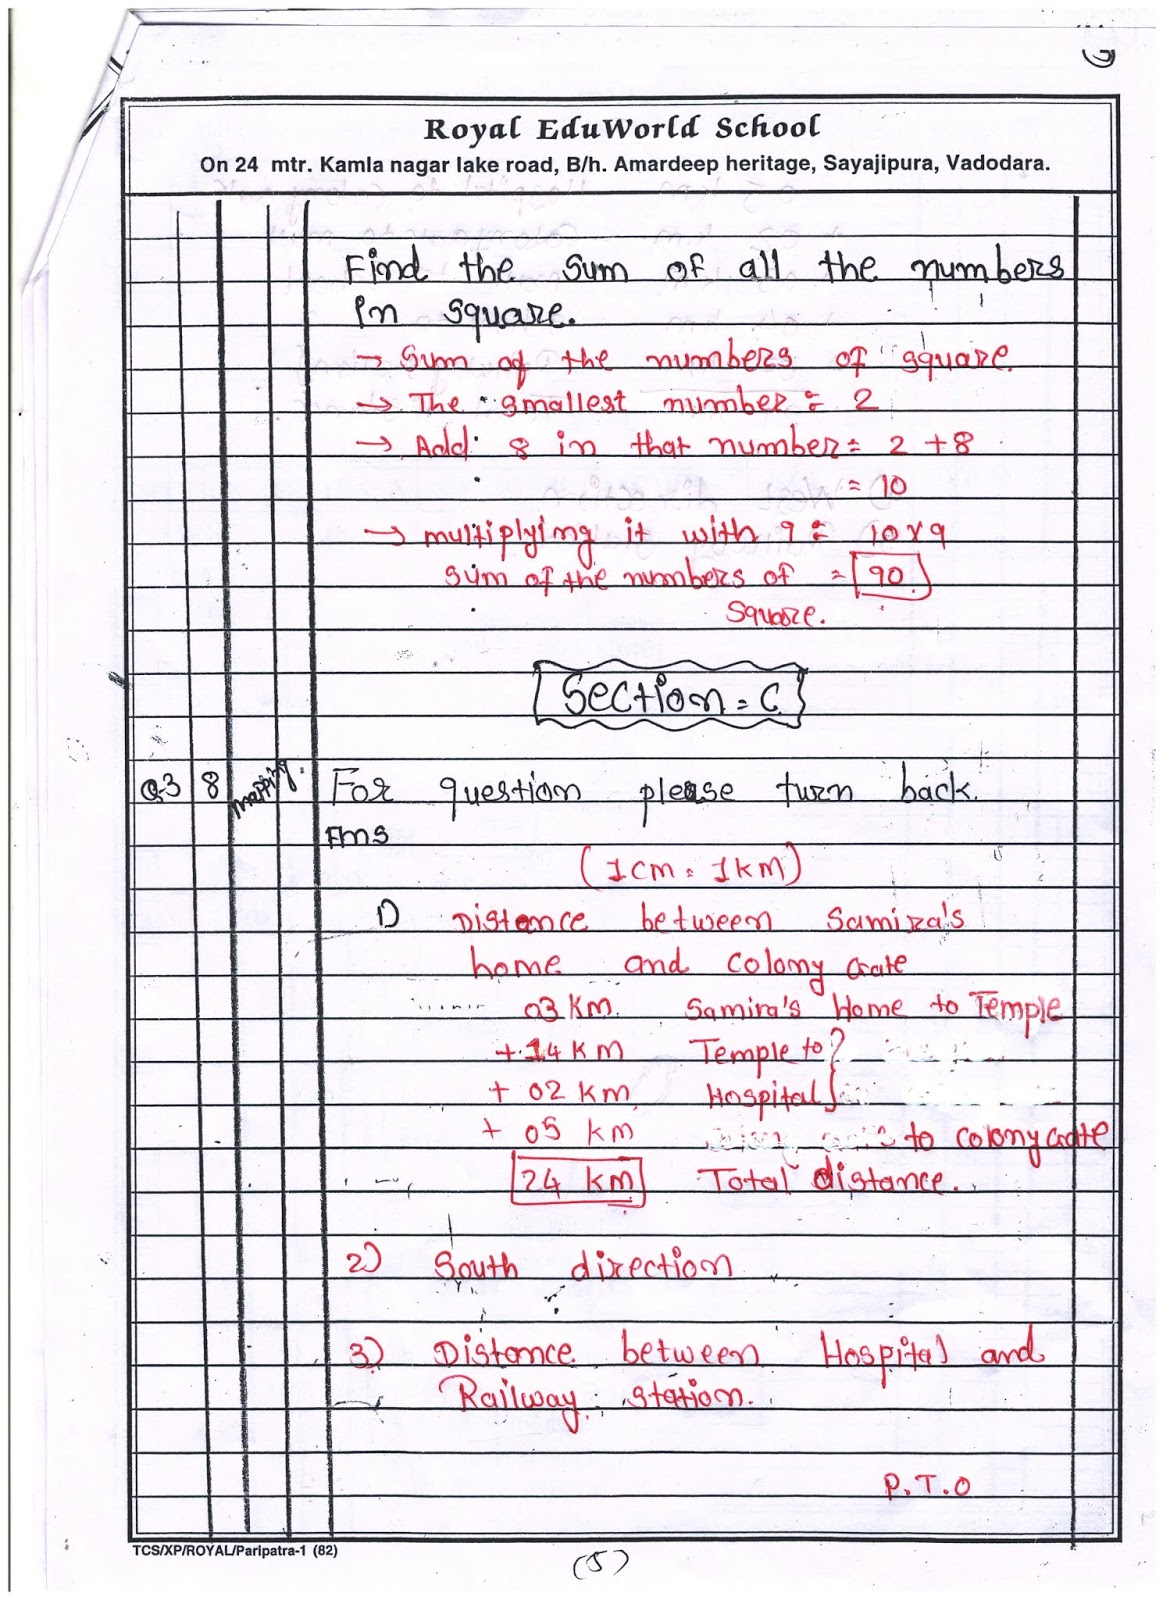 Royal EduWorld School
On 24 mtr. Kamla nagar lake road, B/h. Amardeep heritage, Sayajipura, Vadodara.
Find the sum of all the numbers
in square.
→ Sum of the numbers of square.
→ The smallest number = 2
→ Add 8 in that number = 2 + 8
= 10
→ multiplying it with 9 = 10 x 9
sum of the numbers of = 90
square.
Section = C
Q-3 8 mapping. For question please turn back.
Ems
(1cm = 1km)
1) Distance between Samira's
home and colony Gate
03 Km. Samira's Home to Temple
+ 14 Km Temple to }
+ 02 Km Hospital }
+ 05 Km to colony Gate
24 Km Total distance.
2) South direction
3) Distance between Hospital and
Railway station.
P.T.O
TCS/XP/ROYAL/Paripatra-1 (82)
(5)